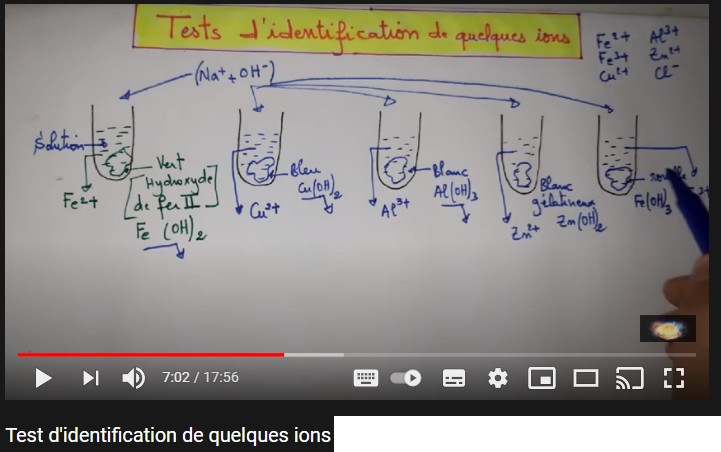 Tests d'identification de quelques ions
Fe²⁺ Al³⁺
Fe³⁺ Zn²⁺
Cu²⁺ Cl⁻
(Na⁺ + OH⁻)
Solution
Fe²⁺
Vert
Hydroxyde
de fer II
Fe (OH)₂
Cu²⁺
Bleu
Cu(OH)₂
Al³⁺
Blanc
Al(OH)₃
Zn²⁺
Blanc
gélatineux
Zn(OH)₂
Fe(OH)₃
7:02 / 17:56
Test d'identification de quelques ions